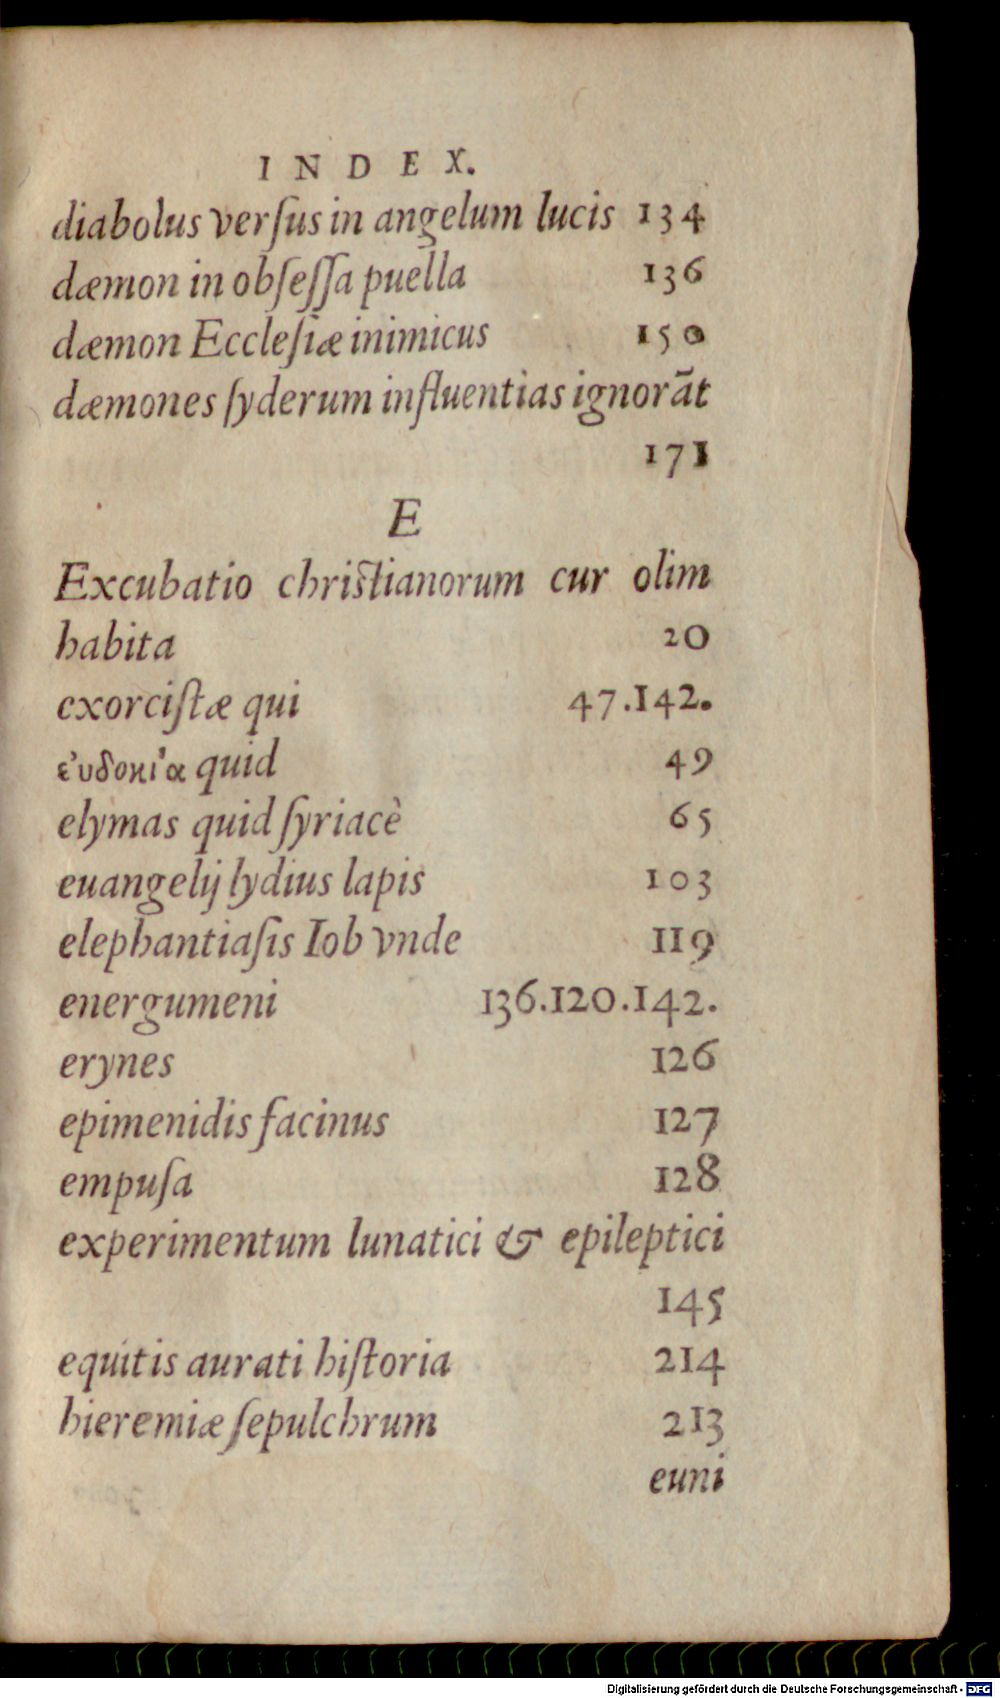 INDEX.
diabolus versus in angelum lucis 134
dæmon in obsessa puella 136
dæmon Ecclesiæ inimicus 150
dæmones syderum influentias ignorāt
171
E
Excubatio christianorum cur olim
habita 20
exorcistæ qui 47.142.
ευ᾽δοκι΄α quid 49
elymas quid syriacè 65
euangelij lydius lapis 103
elephantiasis Iob vnde 119
energumeni 136.120.142.
erynes 126
epimenidis facinus 127
empusa 128
experimentum lunatici & epileptici
145
equitis aurati historia 214
hieremiæ sepulchrum 213
euni
Digitalisierung gefördert durch die Deutsche Forschungsgemeinschaft - DFG